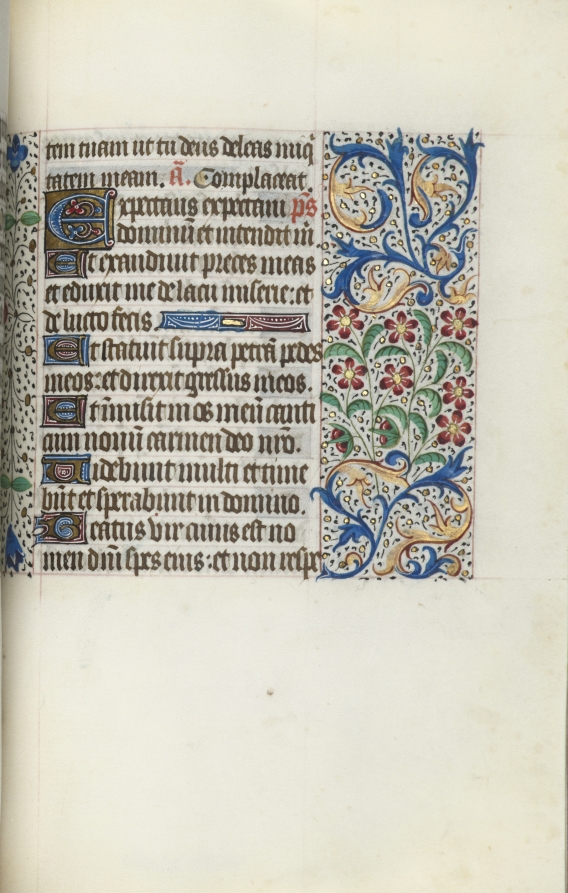 tem tuam ut tu deus deleas iniq̃
tatem meam. ā. Complaceat
Expectans expectaui p̄s
dominū et intendit m̄.
Et exaudiuit preces meas
et eduxit me de lacu miserie: et
de luto fecis
Et statuit supra petrā pedes
meos: et direxit gressus meos.
Et īmisit in os meū canti
cum nouū carmen deo nr̄o.
Uidebunt multi et time
būt et sperabunt in domino.
Beatus vir cuius est no
men dn̄i spes eius: et non respe